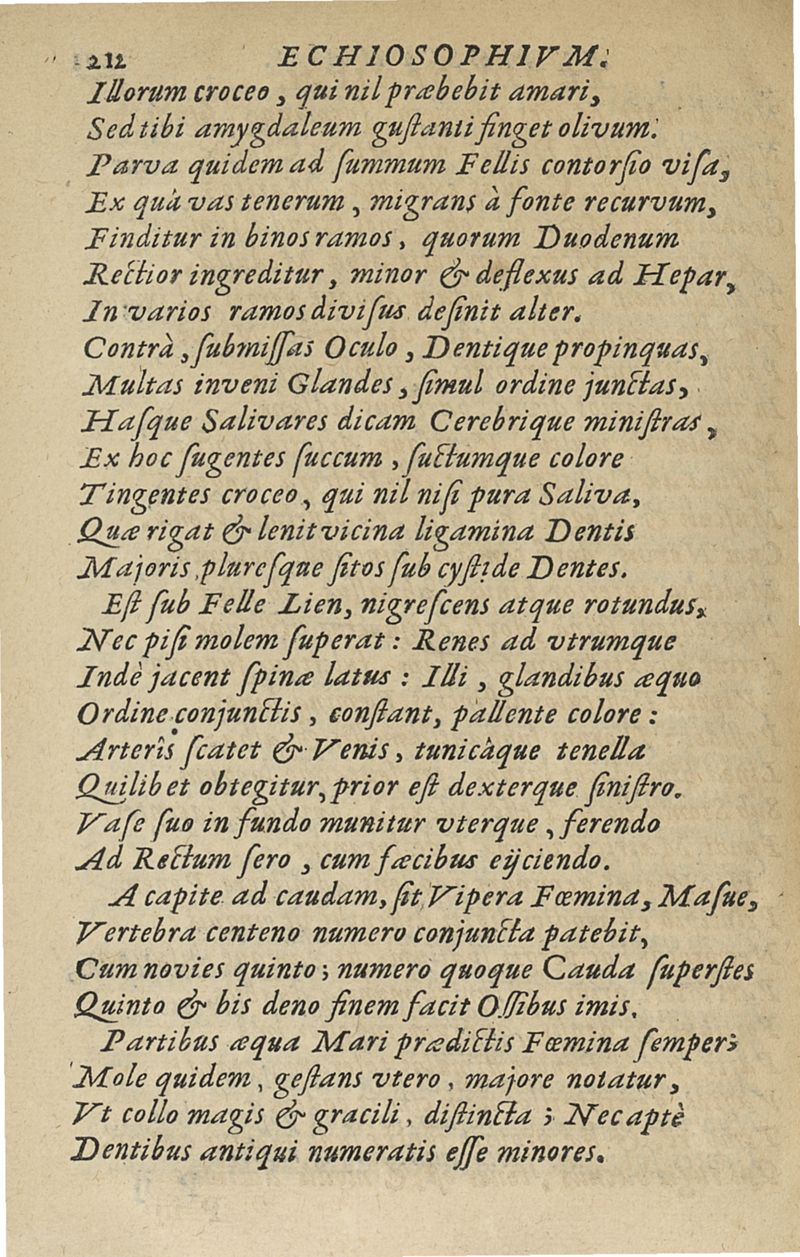 212 ECHIOSOPHIVM.
Illorum croceo, qui nil præbebit amari,
Sed tibi amygdaleum guſtanti finget olivum.
Parva quidem ad ſummum Fellis contorſio viſa,
Ex quà vas tenerum, migrans à fonte recurvum,
Finditur in binos ramos, quorum Duodenum
Rectior ingreditur, minor & deflexus ad Hepar,
In varios ramos diviſus deſinit alter.
Contrà, ſubmiſſas Oculo, Dentique propinquas,
Multas inveni Glandes, ſimul ordine junctas,
Haſque Salivares dicam Cerebrique miniſtras,
Ex hoc ſugentes ſuccum, ſuctumque colore
Tingentes croceo, qui nil niſi pura Saliva,
Quæ rigat & lenit vicina ligamina Dentis
Majoris, plureſque ſitos ſub cyſtide Dentes.
Eſt ſub Felle Lien, nigreſcens atque rotundus,
Nec piſi molem ſuperat: Renes ad vtrumque
Indè jacent ſpinæ latus: Illi, glandibus æquo
Ordine conjunctis, conſtant, pallente colore:
Arterîs ſcatet & Venis, tunicàque tenella
Quilibet obtegitur, prior eſt dexterque ſiniſtro.
Vaſe ſuo in fundo munitur vterque, ferendo
Ad Rectum ſero, cum fæcibus eijciendo.
A capite ad caudam, ſit Vipera Fœmina, Maſue,
Vertebra centeno numero conjuncta patebit,
Cum novies quinto; numero quoque Cauda ſuperſtes
Quinto & bis deno finem facit Oſſibus imis.
Partibus æqua Mari prædictis Fœmina ſemper;
Mole quidem, geſtans vtero, majore notatur,
Vt collo magis & gracili, diſtincta; Nec aptè
Dentibus antiqui numeratis eſſe minores.